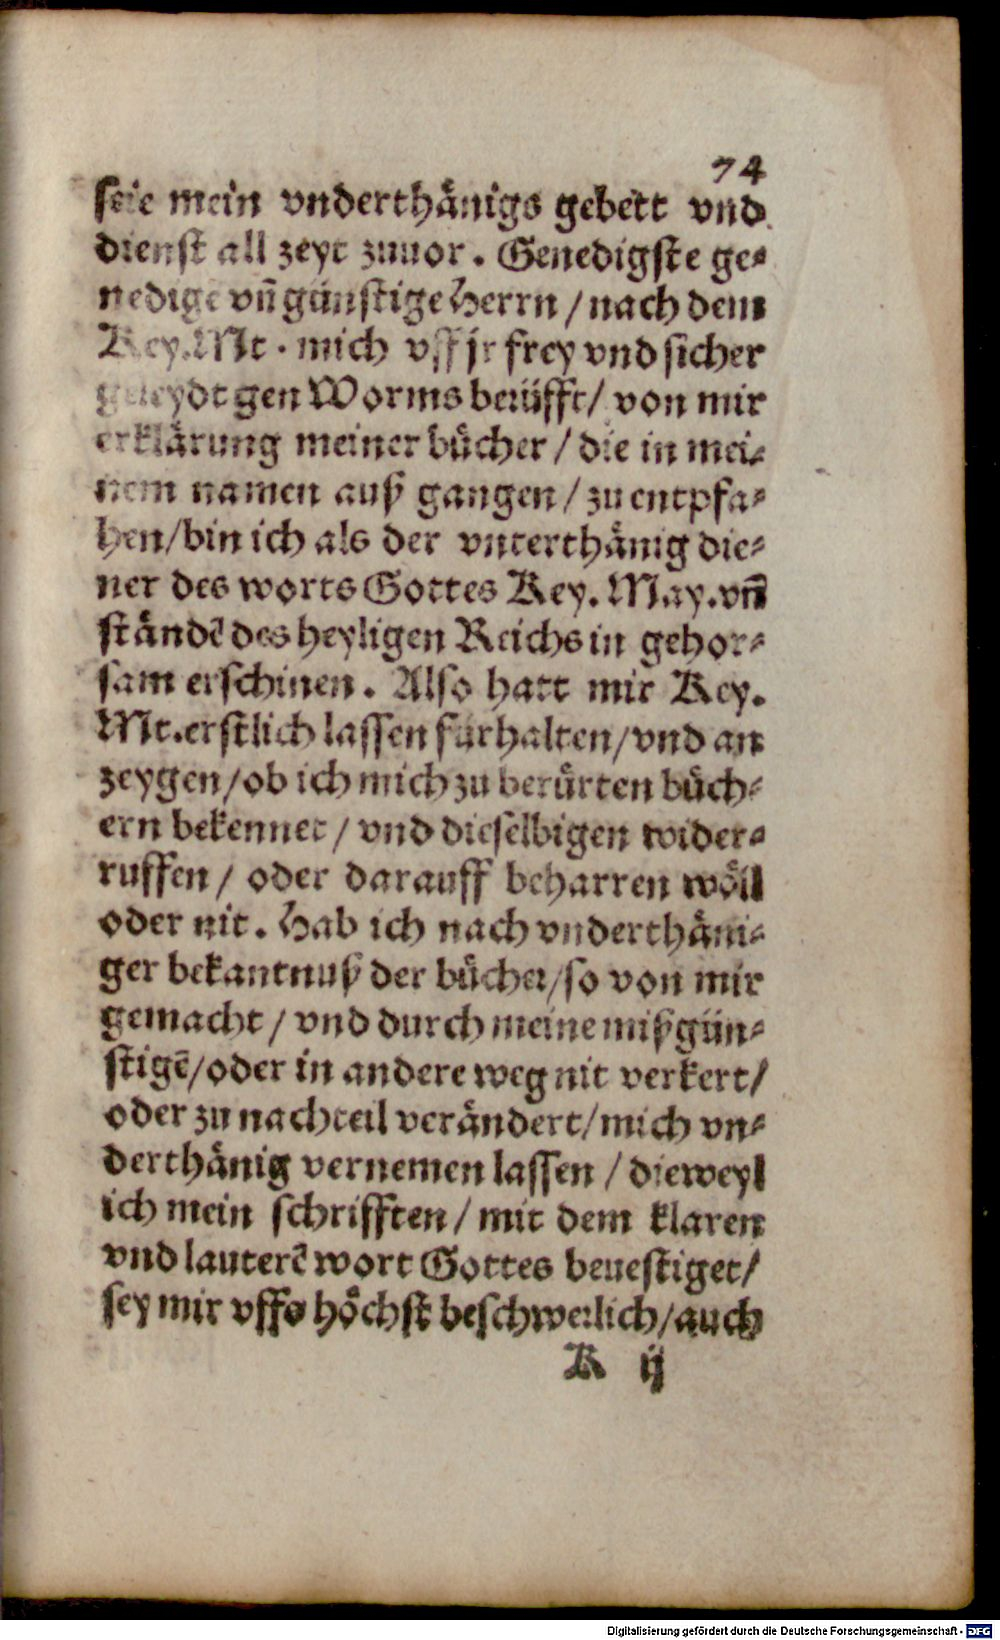 74
seie mein vnderthänigs gebett vnd
dienst all zeyt zuuor. Genedigste ge⸗
nedige vñ günstige Herrn / nach dem
Key. Mt. mich vff jr frey vnd sicher
geleydt gen Worms berüfft / von mir
erklärung meiner bücher / die in mei⸗
nem namen auß gangen / zu entpfa⸗
hen / bin ich als der vnterthänig die⸗
ner des worts Gottes Key. May. vñ
ständẽ des heyligen Reichs in gehor⸗
sam erschinen. Also hatt mir Key.
Mt. erstlich lassen fürhalten / vnd an
zeygen / ob ich mich zu berürten büch⸗
ern bekennet / vnd dieselbigen wider⸗
ruffen / oder darauff beharren wöll
oder nit. Hab ich nach vnderthäni⸗
ger bekantnuß der bücher / so von mir
gemacht / vnd durch meine mißgün⸗
stigẽ / oder in andere weg nit verkert /
oder zu nachteil verändert / mich vn⸗
derthänig vernemen lassen / dieweyl
ich mein schrifften / mit dem klaren
vnd lauterẽ wort Gottes beuestiget /
sey mir vffs höchst beschwerlich / auch
K ij
Digitalisierung gefördert durch die Deutsche Forschungsgemeinschaft - DFG